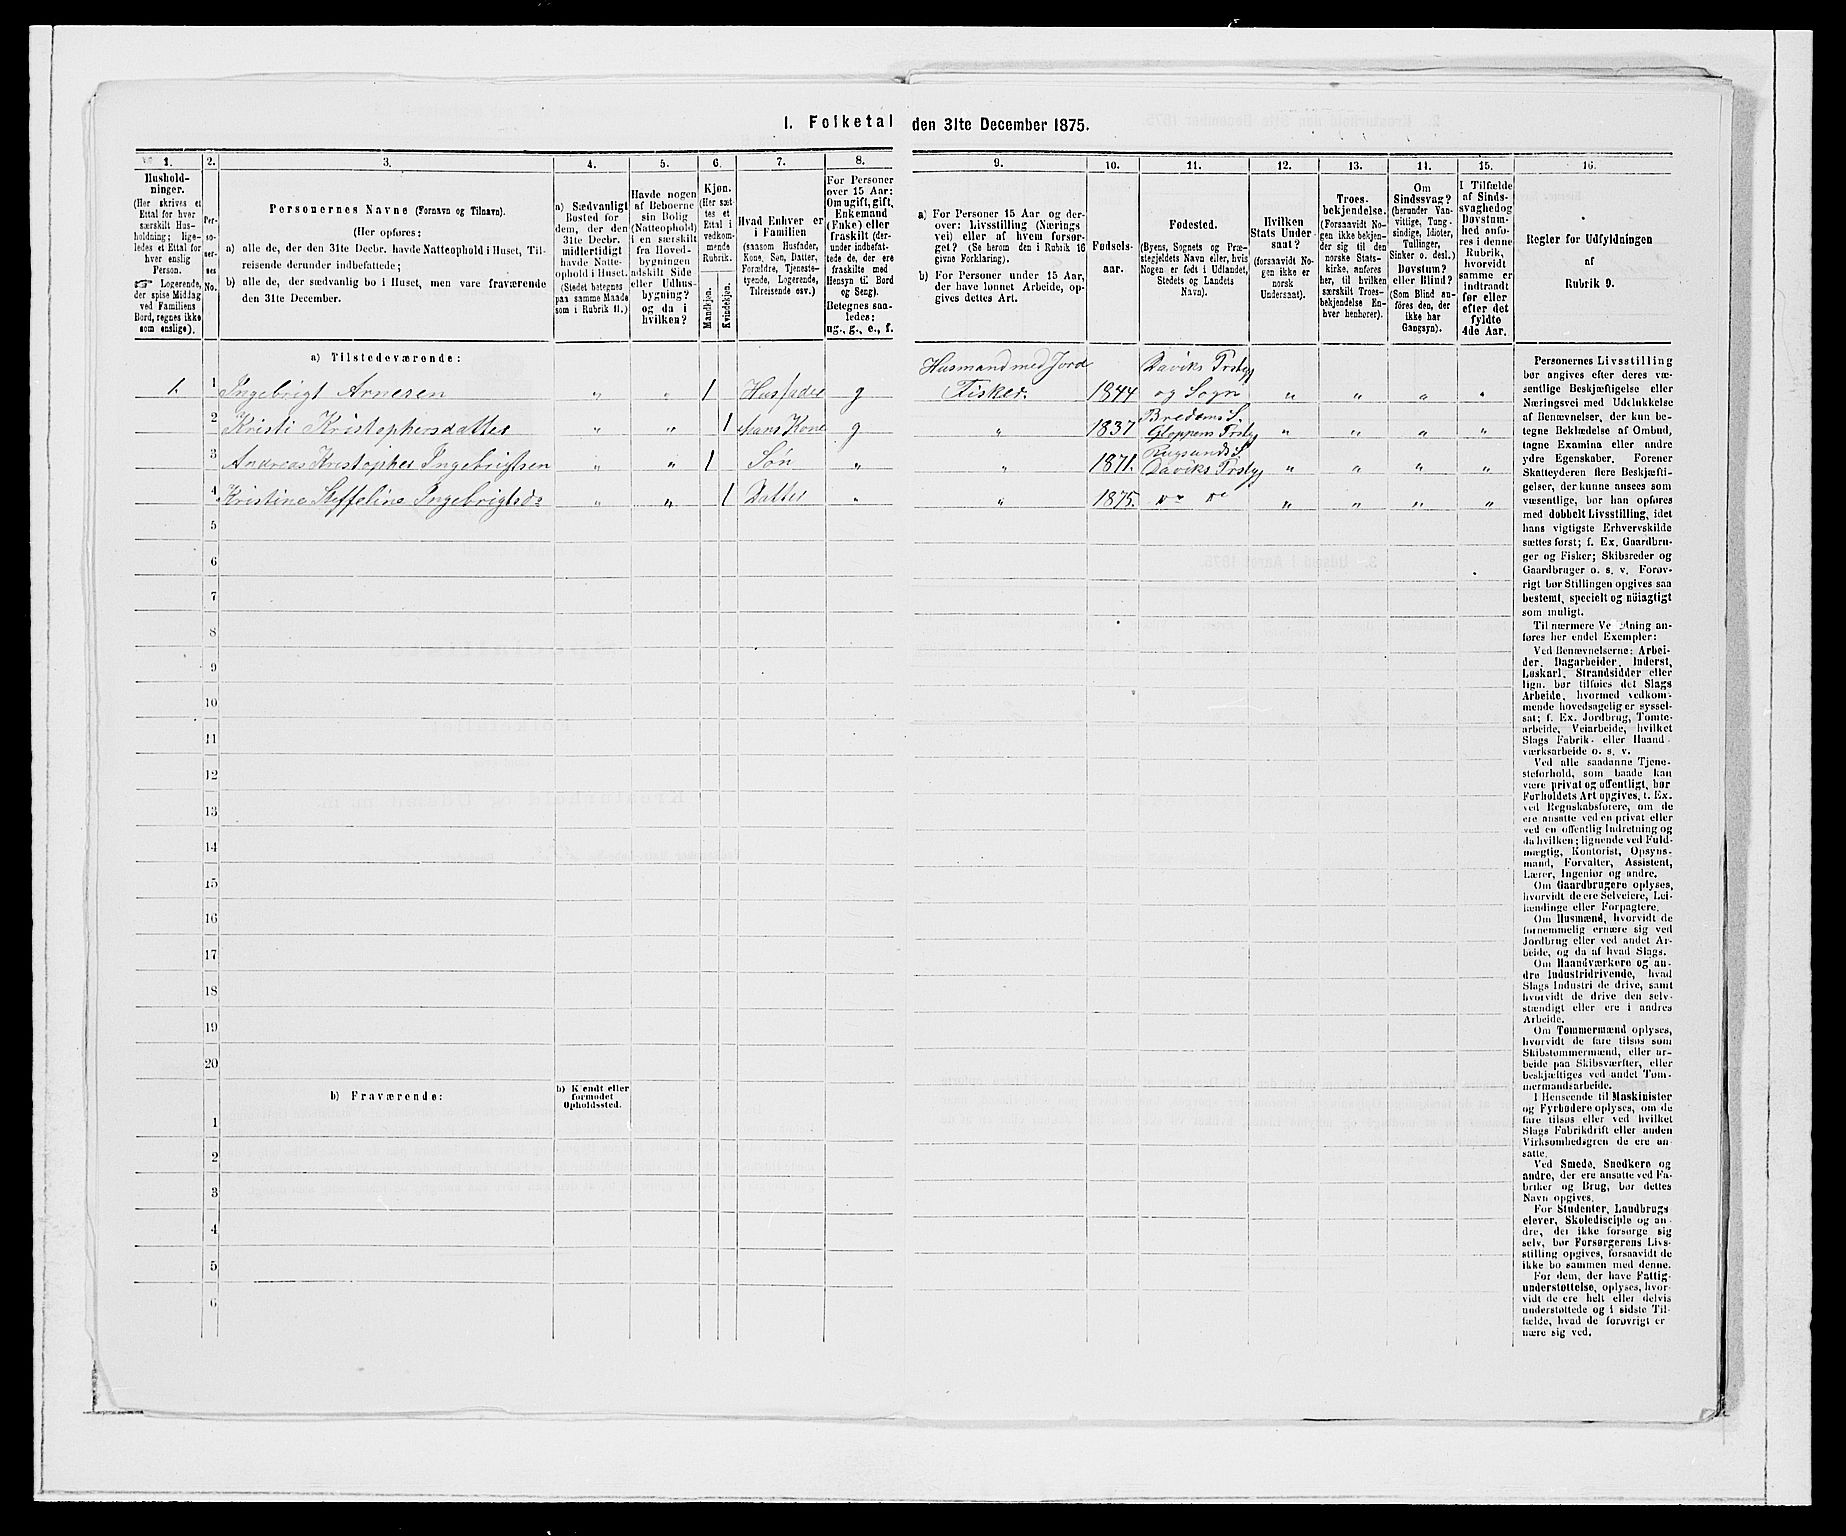 I. Folketal den 31te December 1875.
1. 2. 3. 4. 5. 6. 7. 8. 9. 10. 11. 12. 13. 14. 15. 16.
Hushold-
ninger.
(Her skrives et
Ettal for hver
særskilt Hus-
holdning; lige-
ledes et Ettal for
hver enslig
Person.
☞ Logerende,
der spise Middag
ved Familiens
Bord, regnes ikke
som enslige).
Per-
so-
ner-
nes
No.
Personernes Navne (Fornavn og Tilnavn).
(Her opføres:
a) alle de, der den 31te Decbr. havde Natteophold i Huset, Til-
reisende derunder indbefattede;
b) alle de, der sædvanlig bo i Huset, men vare fraværende
den 31te December.
a) Sædvanligt
Bosted for
dem, der den
31te Decbr.
midlertidigt
havde Natte-
ophold i Huset.
(Stedet betegnes
paa samme Maade
som i Rubrik 11.)
Havde nogen
af Beboerne
sin Bolig
(Natteophold)
i en særskilt
fra Hoved-
bygningen
adskilt Side
eller Udhus-
bygning?
og da i
hvilken?
Kjøn.
(Her sæt-
tes et
Ettal i
vedkom-
mende
Rubrik.
Mandkjøn.
Kvindekjøn.
Hvad Enhver er
i Familien
(saasom Husfader,
Kone, Søn, Datter,
Forældre, Tjeneste-
tyende, Logerende,
Tilreisende osv.)
For Personer
over 15 Aar:
Om ugift, gift,
Enkemand
(Enke) eller
fraskilt (der-
under indbefat-
tede de, der ere
fraskilte med
Hensyn til Bord
og Seng).
Betegnes saa-
ledes:
ug., g., e., f.
a) For Personer 15 Aar og der-
over: Livsstilling (Nærings
vei) eller af hvem forsør-
get? (Se herom den i Rubrik 16
givne Forklaring).
b) For Personer under 15 Aar,
der have lønnet Arbeide, op-
gives dettes Art.
Fødsels-
aar.
Fødested.
(Byens, Sognets og Præ-
stegjeldets Navn eller, hvis
Nogen er født i Udlandet,
Stedets og Landets
Navn).
Hvilken
Stats Under
saat?
(forsaavidt No-
gen ikke er
norsk
Undersaat).
Troes-
bekjendelse.
(Forsaavidt No-
gen ikke bekjen-
der sig til den
norske Stats-
kirke, anføres
her, til hvilken
særskilt Troes-
bekjendelse En-
hver henhører).
Om
Sindssvag?
(herunder Van-
vittige, Tung-
sindige, Idioter,
Tullinger,
Sinker o. desl.)
Døvstum?
eller Blind?
(Som Blind an-
føres den, der
ikke har
Gangsyn).
I Tilfælde
af Sinds-
svaghed og
Døvstum-
hed anfø-
res i denne
Rubrik,
hvorvidt
samme er
indtraadt
før eller
efter det
fyldte
4de Aar.
Regler for Udfyldningen
af
Rubrik 9.
a) Tilstedeværende:
1 1 Ingebrigt Arnesen " " 1 Husfader g Husmand med Jord Fisker 1844 Daviks Prstgj og Sogn " " " "
2 Kristi Kristophersdatter " " 1 hans Kone g " 1837 Bredems S. Gloppens Prstgj " " " "
3 Andreas Kristopher Ingebrigtsen " " 1 Søn " " 1871. Rugsunds S. Daviks Prstgj " " " "
4 Kristine Steffeline Ingebrigtsd: " " 1 Datter " " 1875. do do " " " "
5
6
7
8
9
10
11
12
13
14
15
16
17
18
19
20
b) Fraværende:
b) Kjendt eller
formodet
Opholdssted.
1
2
3
4
5
6
Personernes Livsstilling
bør angives efter deres væ-
sentlige Beskjæftigelse eller
Næringsvei med Udelukkelse
af Benævnelser, der kun be-
tegne Beklædelse af Ombud,
tagne Examina eller andre
ydre Egenskaber. Forener
Skatteyderen flere Beskjæfti-
gelser, der kunne ansees som
væsentlige, bør han opføres
med dobbelt Livsstilling, idet
hans vigtigste Erhvervskilde
sættes først; f. Ex. Gaardbru-
ger og Fisker; Skibsreder og
Gaardbruger o. s. v. Forøv-
rigt bør Stillingen opgives saa
bestemt, specielt og nöiagtigt
som muligt.
Til nærmere Veiledning an-
føres her endel Exempler:
Ved Benævnelserne: Arbei-
der, Dagarbeider, Inderst,
Løskarl, Strandsidder eller
lign. bør tilføies det Slags
Arbeide, hvormed vedkom-
mende hovedsagelig er syssel-
sat; f. Ex. Jordbrug, Tomte-
arbeide, Veiarbeide, hvilket
Slags Fabrik- eller Haand-
værksarbeide o. s. v.
Ved alle saadanne Tjene-
steforhold, som baade kan
være privat og offentligt, bør
Forholdets Art opgives, f. Ex.
ved Regnskabsførere, om de
ere ansatte ved en privat eller
ved en offentlig Indretning og
da hvilken; lignende ved Fuld-
mægtig, Kontorist, Opsyns-
mand, Forvalter, Assistent,
Lærer, Ingeniør og andre.
Om Gaardbrugere oplyses,
hvorvidt de ere Selveiere, Lei-
lændinge eller Forpagtere.
Om Husmænd, hvorvidt de
fornemmelig ernære sig ved
Jordbrug eller ved andet Ar-
beide, og da af hvad Slags.
Om Haandværkere og an-
dre Industridrivende, hvad
Slags Industri de drive, samt
hvorvidt de drive den selv-
stændigt eller ere i andres
Arbeide.
Om Tømmermænd oplyses,
hvorvidt de fare tilsøs som
Skibstømmermænd, eller ar-
beide paa Skibsværfter, eller
beskjæftiges ved andet Tøm-
mermandsarbeide.
I Henseende til Maskinister
og Fyrbødere oplyses, om de
fare tilsøs eller ved hvilket
Slags Fabrikdrift eller anden
Virksomhedsgren de ere an-
satte.
Ved Smede, Snedkere og
andre, der ere ansatte ved Fa-
briker og Brug, bør dettes
Navn opgives.
For Studenter, Landbrugs
elever, Skoledisciple og an-
dre, der ikke forsørge sig
selv, bør Forsørgerens Livs-
stilling opgives, forsaavidt de
ikke bo sammen med denne.
For dem, der have Fattig-
understøttelse, oplyses, hvor-
vidt de ere helt eller delvis
understøttede og i sidste Til-
fælde, hvad de forøvrigt er
nære sig ved.